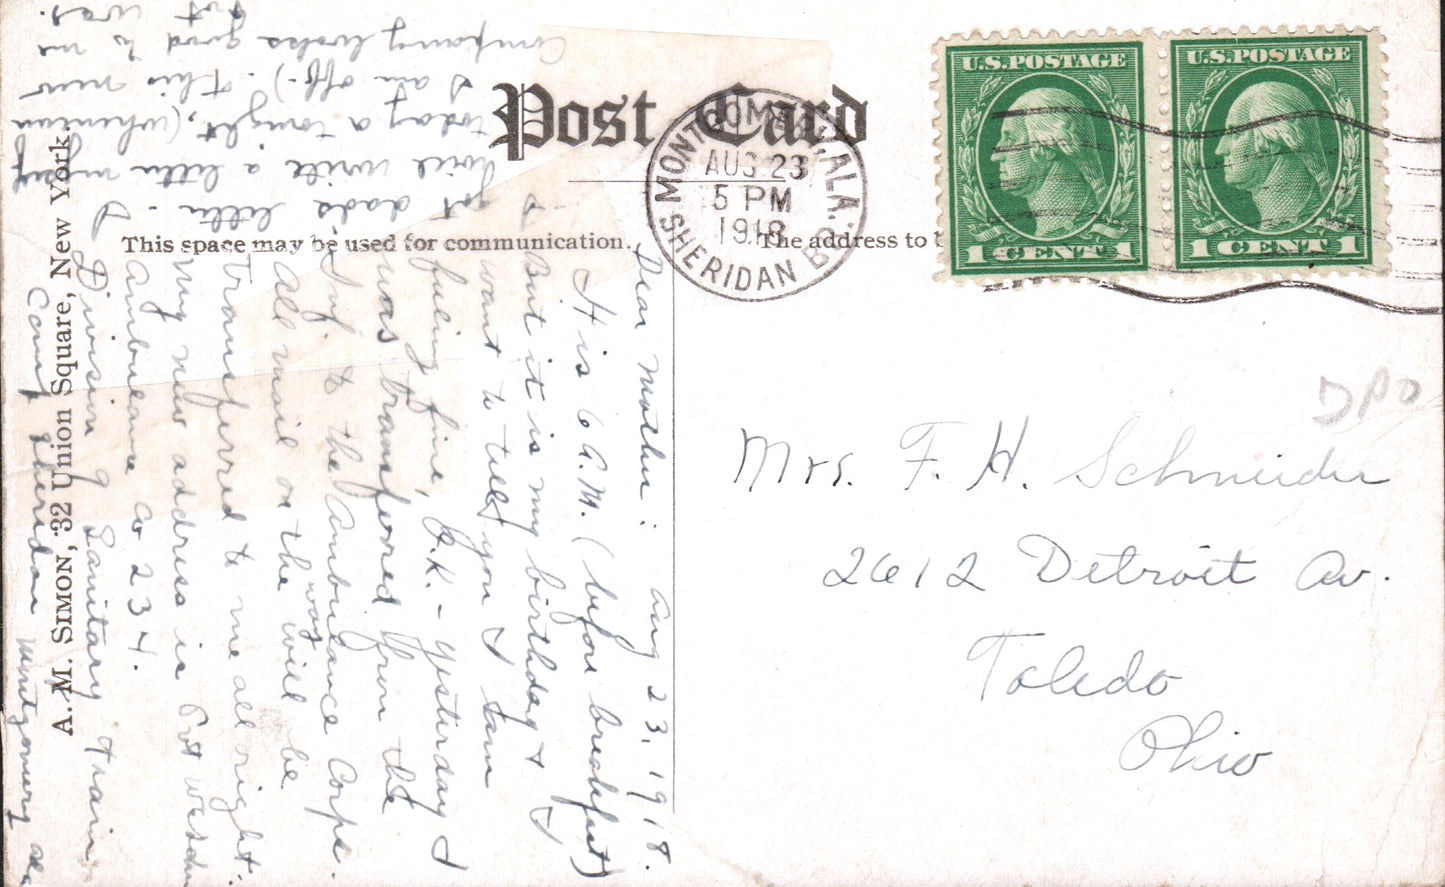 Post Card
This space may be used for communication.
The address to
A. M. SIMON, 32 Union Square, New York.
MONTGOMERY, ALA.
AUG 23
5 PM
1918
SHERIDAN BR.
U.S. POSTAGE
1 CENT 1
U.S. POSTAGE
1 CENT 1
Mrs. F. H. Schneider
2612 Detroit Av.
Toledo
Ohio
Aug 23, 1918.
Dear Mother:
It is 6 A.M. (before breakfast)
But it is my birthday &
want to tell you I am
fueling fine, O.K. - yesterday I
was transferred from the
Inf. to the Ambulance Corps.
All mail on the way will be
transferred to me all right.
My new address is Pvt
Ambulance Co 234.
Division 9 Sanitary Train,
Camp Sheridan Montgomery Ala
I
got dads letter. I
will write a letter
today or tonight, (when
I am off-). This new
Company looks good to me